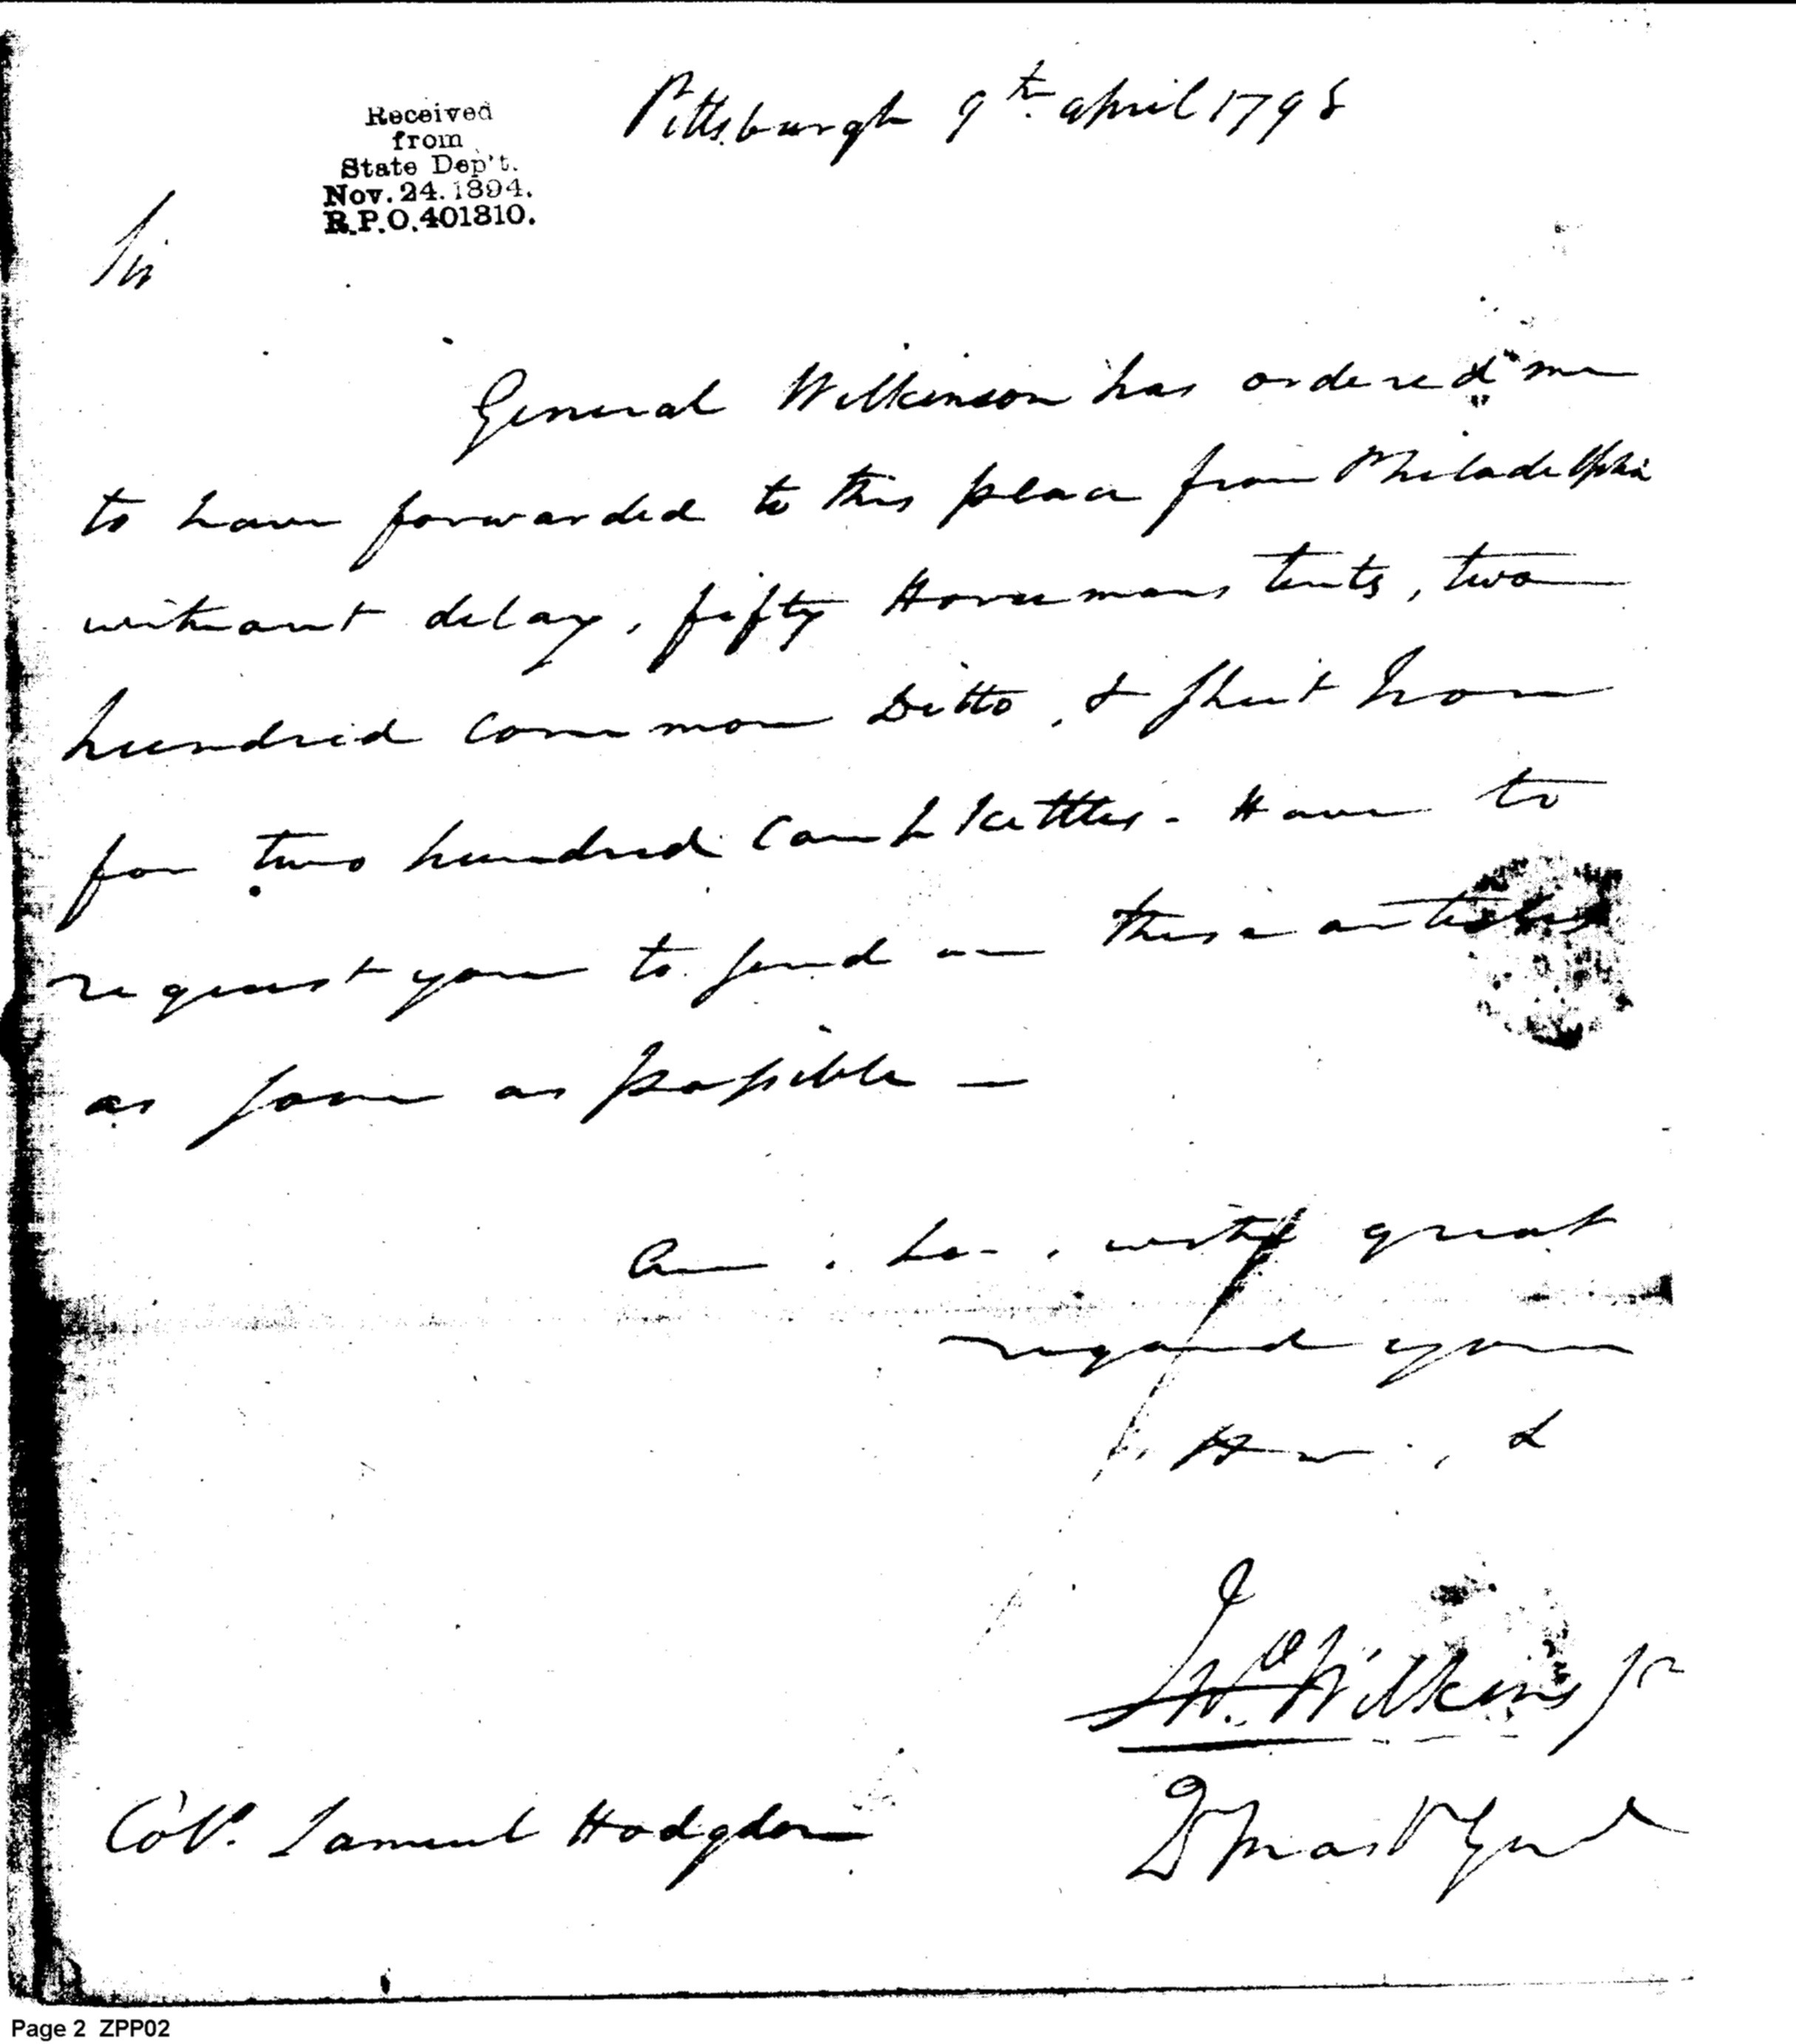 Pittsburgh 9th april 1798
Received
from
State Dep't.
Nov. 24. 1894.
R.P.O. 401810.
Sir
General Wilkinson has ordered me
to have forwarded to this place from Philadelphia
without delay, fifty Horsemans tents, two
hundred Common Ditto, & Sheet Iron
for two hundred Camp Kettles - Have to
request you to send on these articles
as soon as possible —
Am . Sr. , with great
regard your
H , &
Jno. Wilkins Jr
Qr Mastr Genl
Coll. Samuel Hodgdon
Page 2 ZPP02